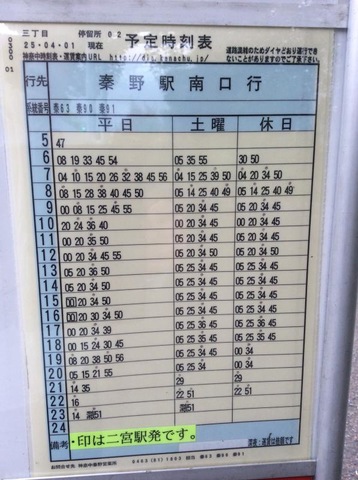 三丁目 停留所 0-2 予定時刻表
25-04-01 現在
行先 秦野駅南口行
系統番号 秦63 秦90 秦91
平日 土曜 休日
5 47
6 08 19 33 45 54 05 35 55 30 50
7 04 10 15 20 26 32 38 45 56 04 15 25 39 50 04 20 34 50
8 08 15 28 38 40 45 50 05 14 25 40 49 05 14 25 40 49
9 00 08 15 25 45 55 05 20 34 45 05 20 34 45
10 20 24 36 40 05 20 34 45 05 20 34 45
11 00 20 35 50 05 20 34 45 05 20 34 45
12 00 20 34 50 05 20 34 45 05 20 34 45
13 05 20 36 50 05 25 34 45 05 25 34 45
14 05 20 34 50 05 25 34 45 05 25 34 45
15 00 20 34 50 05 25 34 45 05 25 34 45
16 00 20 34 50 05 25 34 45 05 25 34 45
17 00 20 34 39 05 25 34 45 05 25 34 45
18 00 15 24 30 45 05 25 35 45 05 25 35 45
19 08 20 38 50 56 05 25 34 45 00 34
20 05 15 21 55 05 25 34 45 00 34
21 14 35 29 29
22 16 22 51 22 51
23 14 深51 深51
24
備考 ・印は二宮駅発です。